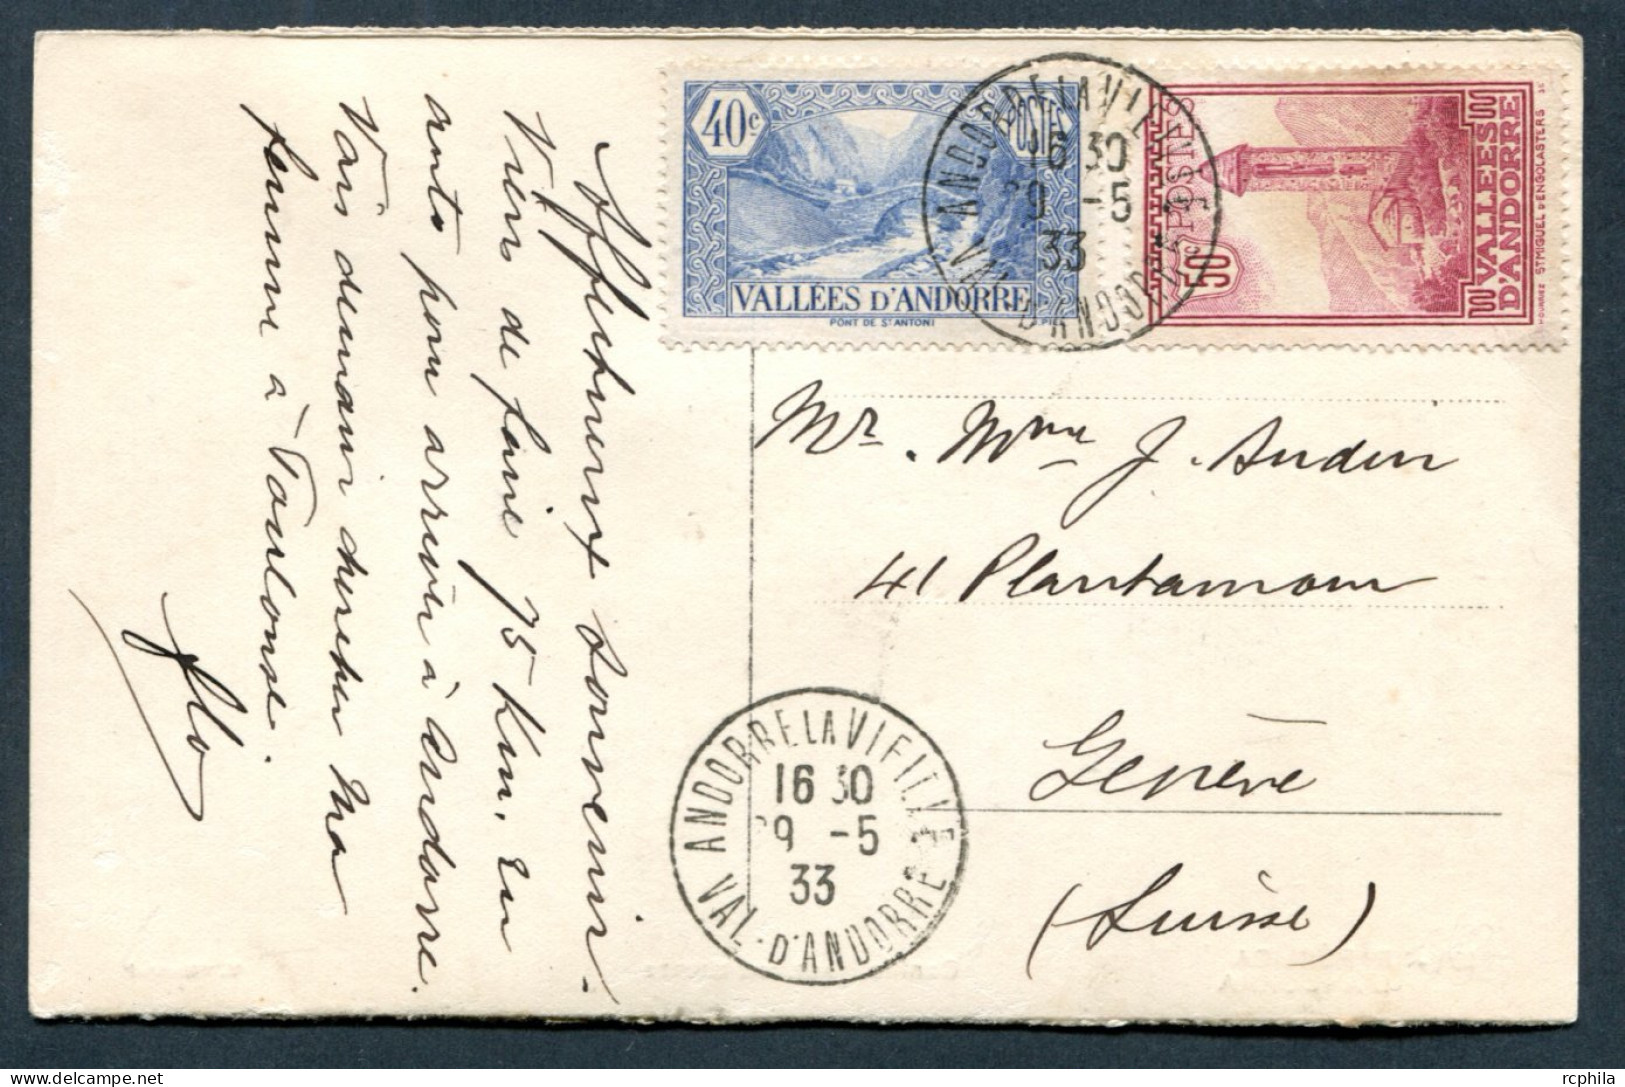 40c
POSTES
VALLÉES D'ANDORRE
PONT DE ST ANTONI
50c
POSTES
VALLEES
D'ANDORRE
ST MIGUEL D'ENGOLASTERS
ANDORRE LA VIEILLE
16 30
9 -5
33
VAL D'ANDORRE
Affectueux souvenir.
Viens de faire 75 km. en
auto pour arriver à Andorre.
Vais demain chercher ma
femme à Toulouse.
Flo
Mr. Mme J. Audin
41 Plantamour
Genève
(Suisse)
ANDORRE LA VIEILLE
16 30
9 -5
33
VAL-D'ANDORRE
rcphila